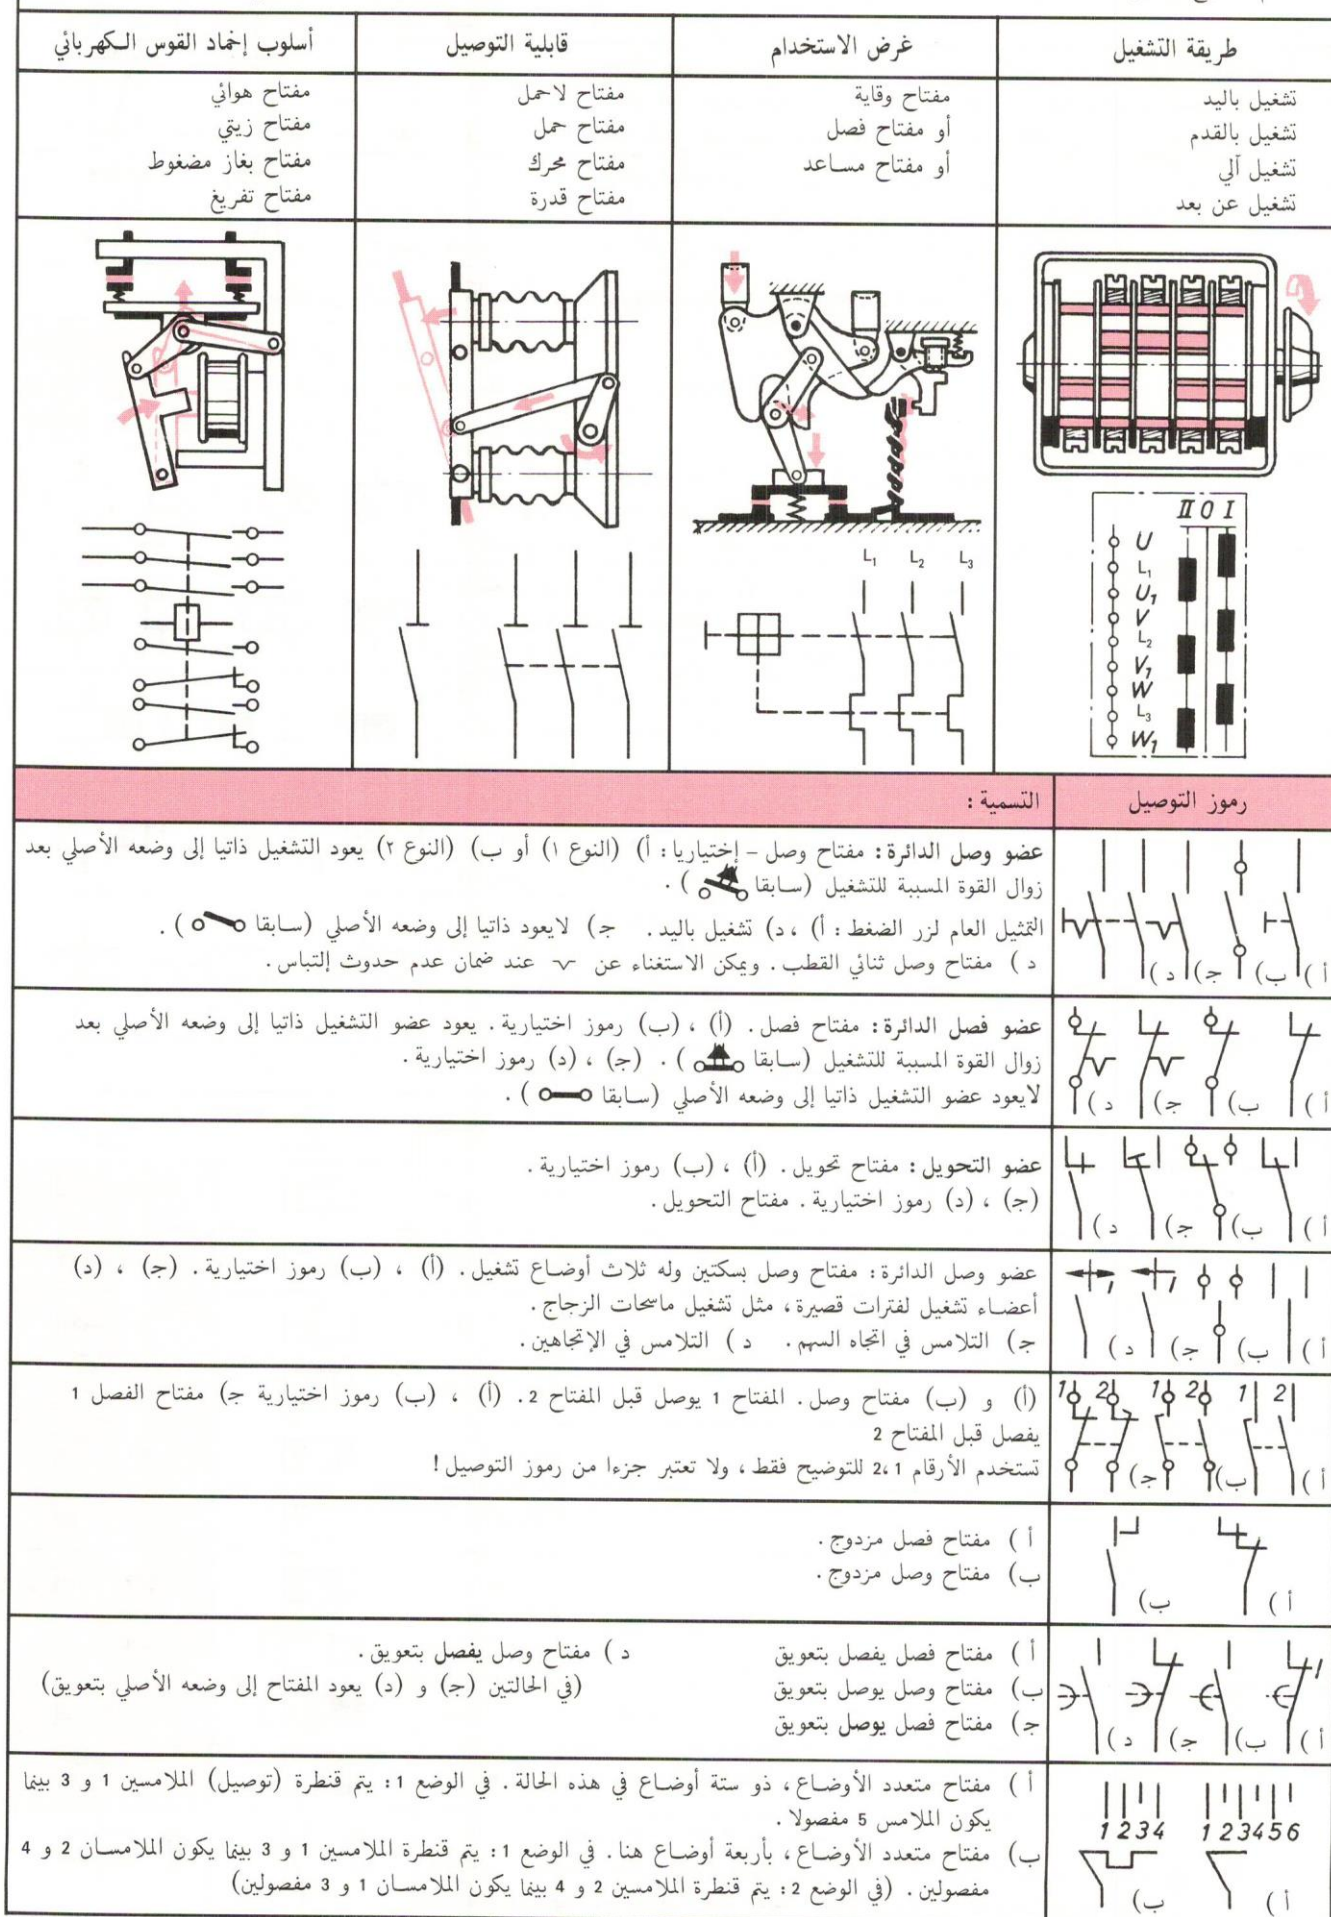 طريقة التشغيل
تشغيل باليد
تشغيل بالقدم
تشغيل آلي
تشغيل عن بعد
غرض الاستخدام
مفتاح وقاية
أو مفتاح فصل
أو مفتاح مساعد
قابلية التوصيل
مفتاح لاحمل
مفتاح حمل
مفتاح محرك
مفتاح قدرة
أسلوب إخماد القوس الكهربائي
مفتاح هوائي
مفتاح زيتي
مفتاح بغاز مضغوط
مفتاح تفريغ
II 0 I
U
L₁
U₁
V
L₂
V₁
W
L₃
W₁
L₁ L₂ L₃
رموز التوصيل
التسمية :
أ ) ب) ج) د )
عضو وصل الدائرة : مفتاح وصل - إختياريا : أ) (النوع ١) أو ب) (النوع ٢) يعود التشغيل ذاتيا إلى وضعه الأصلي بعد
زوال القوة المسببة للتشغيل (سابقا ) .
التمثيل العام لزر الضغط : أ) ، د) تشغيل باليد . ج) لايعود ذاتيا إلى وضعه الأصلي (سابقا ) .
د ) مفتاح وصل ثنائي القطب . ويمكن الاستغناء عن عند ضمان عدم حدوث إلتباس .
أ ) ب) ج) د )
عضو فصل الدائرة : مفتاح فصل . (أ) ، (ب) رموز اختيارية . يعود عضو التشغيل ذاتيا إلى وضعه الأصلي بعد
زوال القوة المسببة للتشغيل (سابقا ) . (ج) ، (د) رموز اختيارية .
لايعود عضو التشغيل ذاتيا إلى وضعه الأصلي (سابقا ) .
أ ) ب) ج) د )
عضو التحويل : مفتاح تحويل . (أ) ، (ب) رموز اختيارية .
(ج) ، (د) رموز اختيارية . مفتاح التحويل .
أ ) ب) ج) د )
عضو وصل الدائرة : مفتاح وصل بسكتين وله ثلاث أوضاع تشغيل . (أ) ، (ب) رموز اختيارية . (ج) ، (د)
أعضاء تشغيل لفترات قصيرة ، مثل تشغيل ماسحات الزجاج .
ج) التلامس في اتجاه السهم . د ) التلامس في الإتجاهين .
1 2 1 2 1 2
أ ) ب) ج)
(أ) و (ب) مفتاح وصل . المفتاح 1 يوصل قبل المفتاح 2 . (أ) ، (ب) رموز اختيارية ج) مفتاح الفصل 1
يفصل قبل المفتاح 2
تستخدم الأرقام 1 ،2 للتوضيح فقط ، ولا تعتبر جزءا من رموز التوصيل !
أ ) ب)
أ ) مفتاح فصل مزدوج .
ب) مفتاح وصل مزدوج .
أ ) ب) ج) د )
أ ) مفتاح فصل يفصل بتعويق
ب) مفتاح وصل يوصل بتعويق
ج) مفتاح فصل يوصل بتعويق
د ) مفتاح وصل يفصل بتعويق .
(في الحالتين (ج) و (د) يعود المفتاح إلى وضعه الأصلي بتعويق)
1 2 3 4 1 2 3 4 5 6
أ ) ب)
أ ) مفتاح متعدد الأوضاع ، ذو ستة أوضاع في هذه الحالة . في الوضع 1 : يتم قنطرة (توصيل) الملامسين 1 و 3 بينما
يكون الملامس 5 مفصولا .
ب) مفتاح متعدد الأوضاع ، بأربعة أوضاع هنا . في الوضع 1 : يتم قنطرة الملامسين 1 و 3 بينما يكون الملامسان 2 و 4
مفصولين . (في الوضع 2 : يتم قنطرة الملامسين 2 و 4 بينما يكون الملامسان 1 و 3 مفصولين)